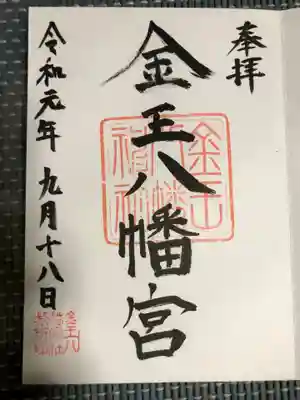 奉拝
金王八幡宮
令和元年 九月十八日